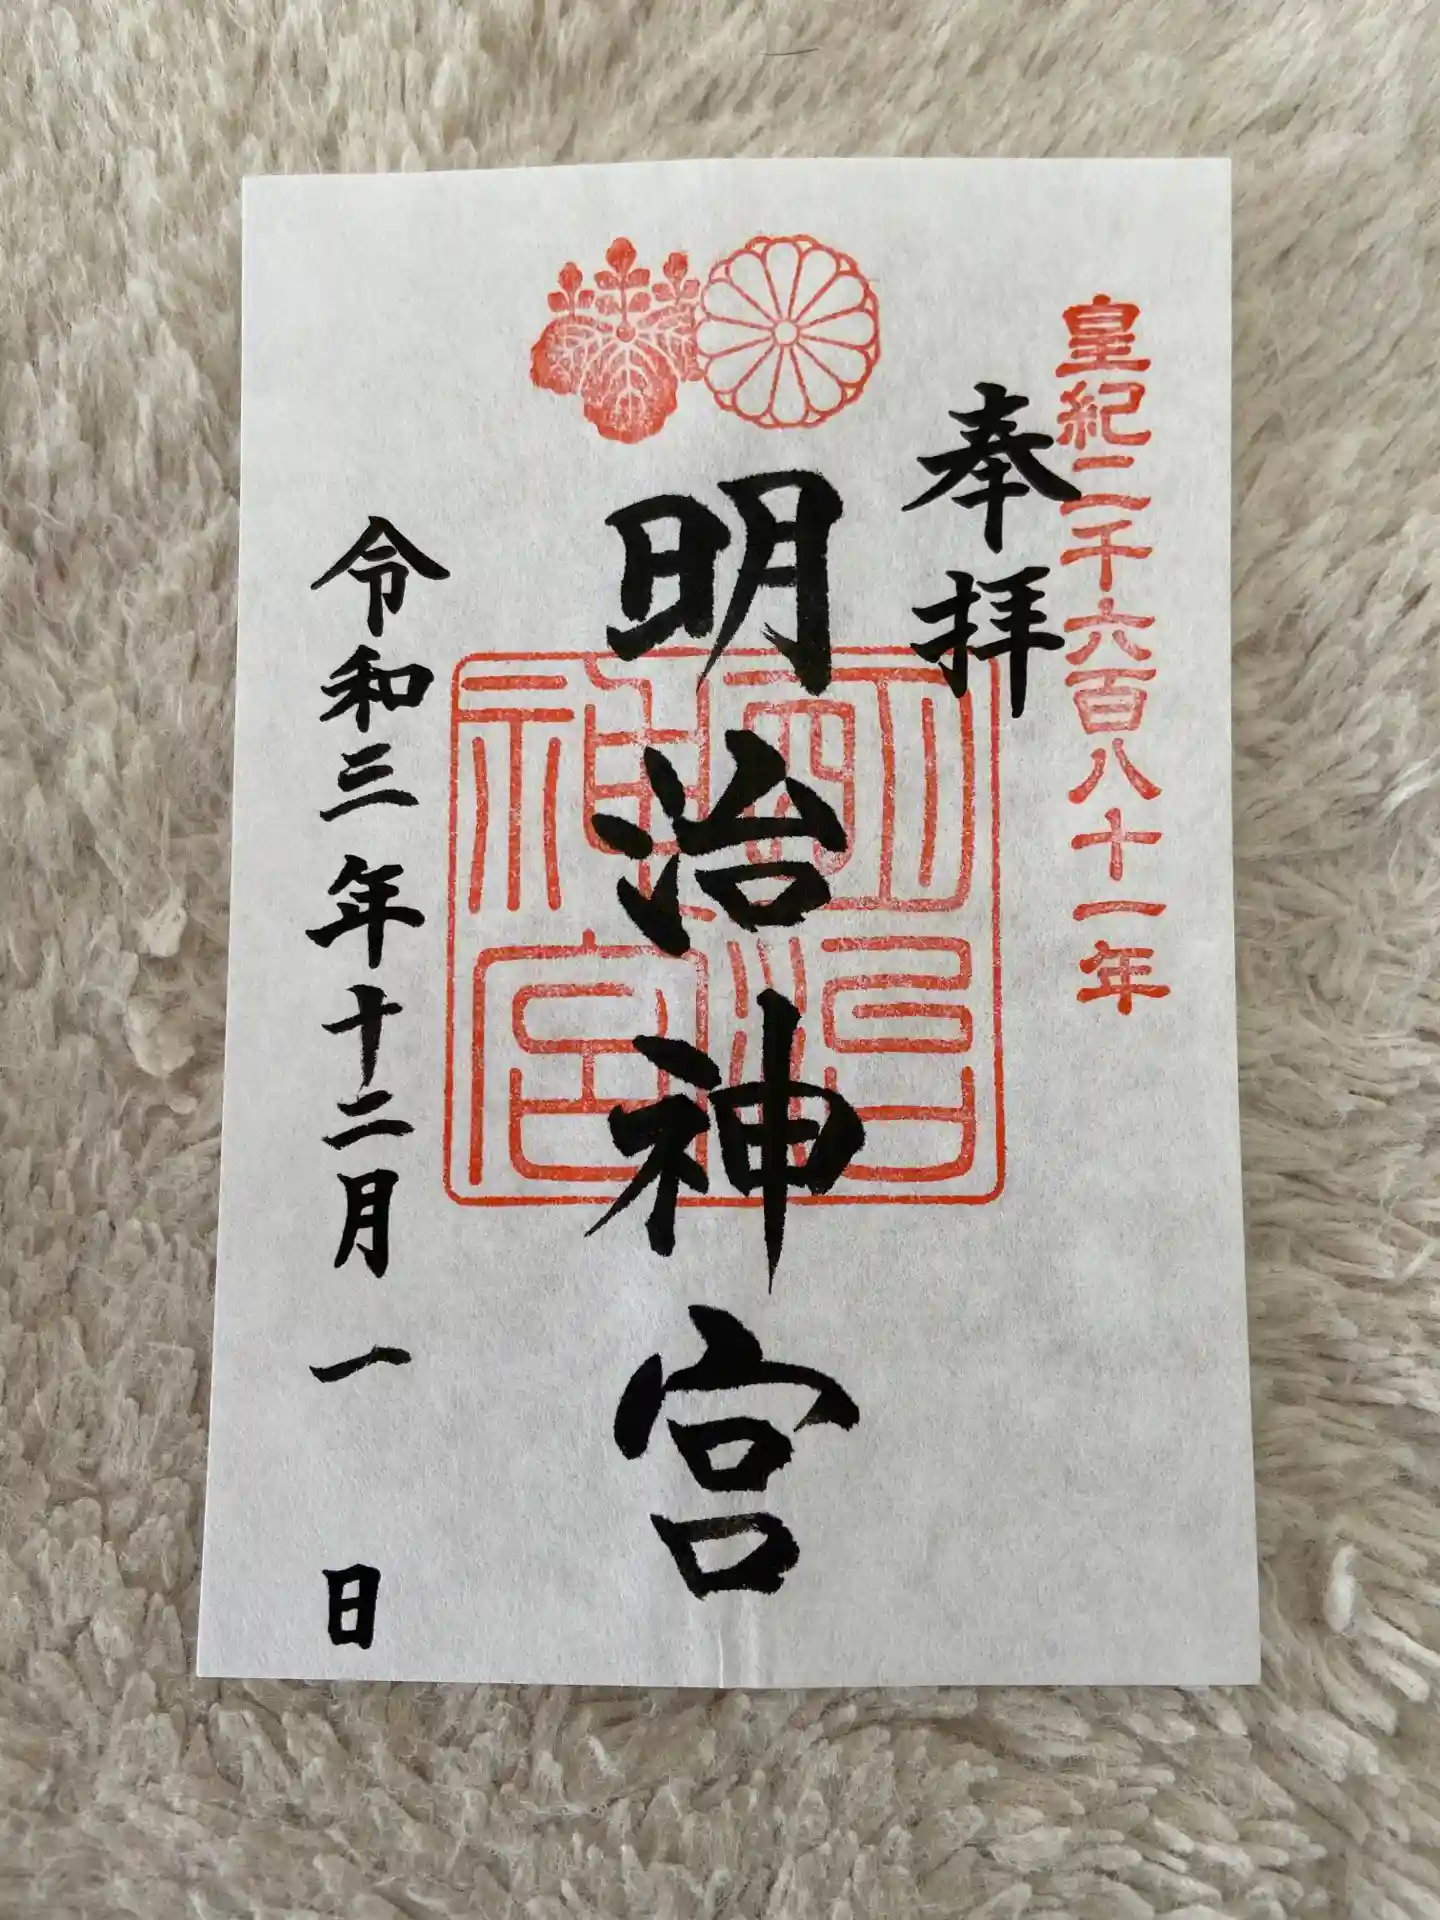 皇紀二千六百八十一年
奉拝
明治神宮
明治
神宮
令和三年十二月一日